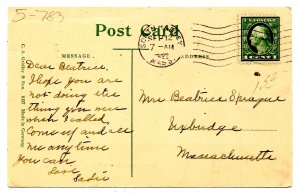 5-783
Post Card
MESSAGE.
ADDRESS
7-AM
MASS.
1 CENT 1
Made in Germany
Dear Beatrice,
I hope you are
not doing the
thing you were
when I called.
Come up and see
me any time
You can.
Love
Sadie
Mrs Beatrice Sprague
Uxbridge
Massachusetts